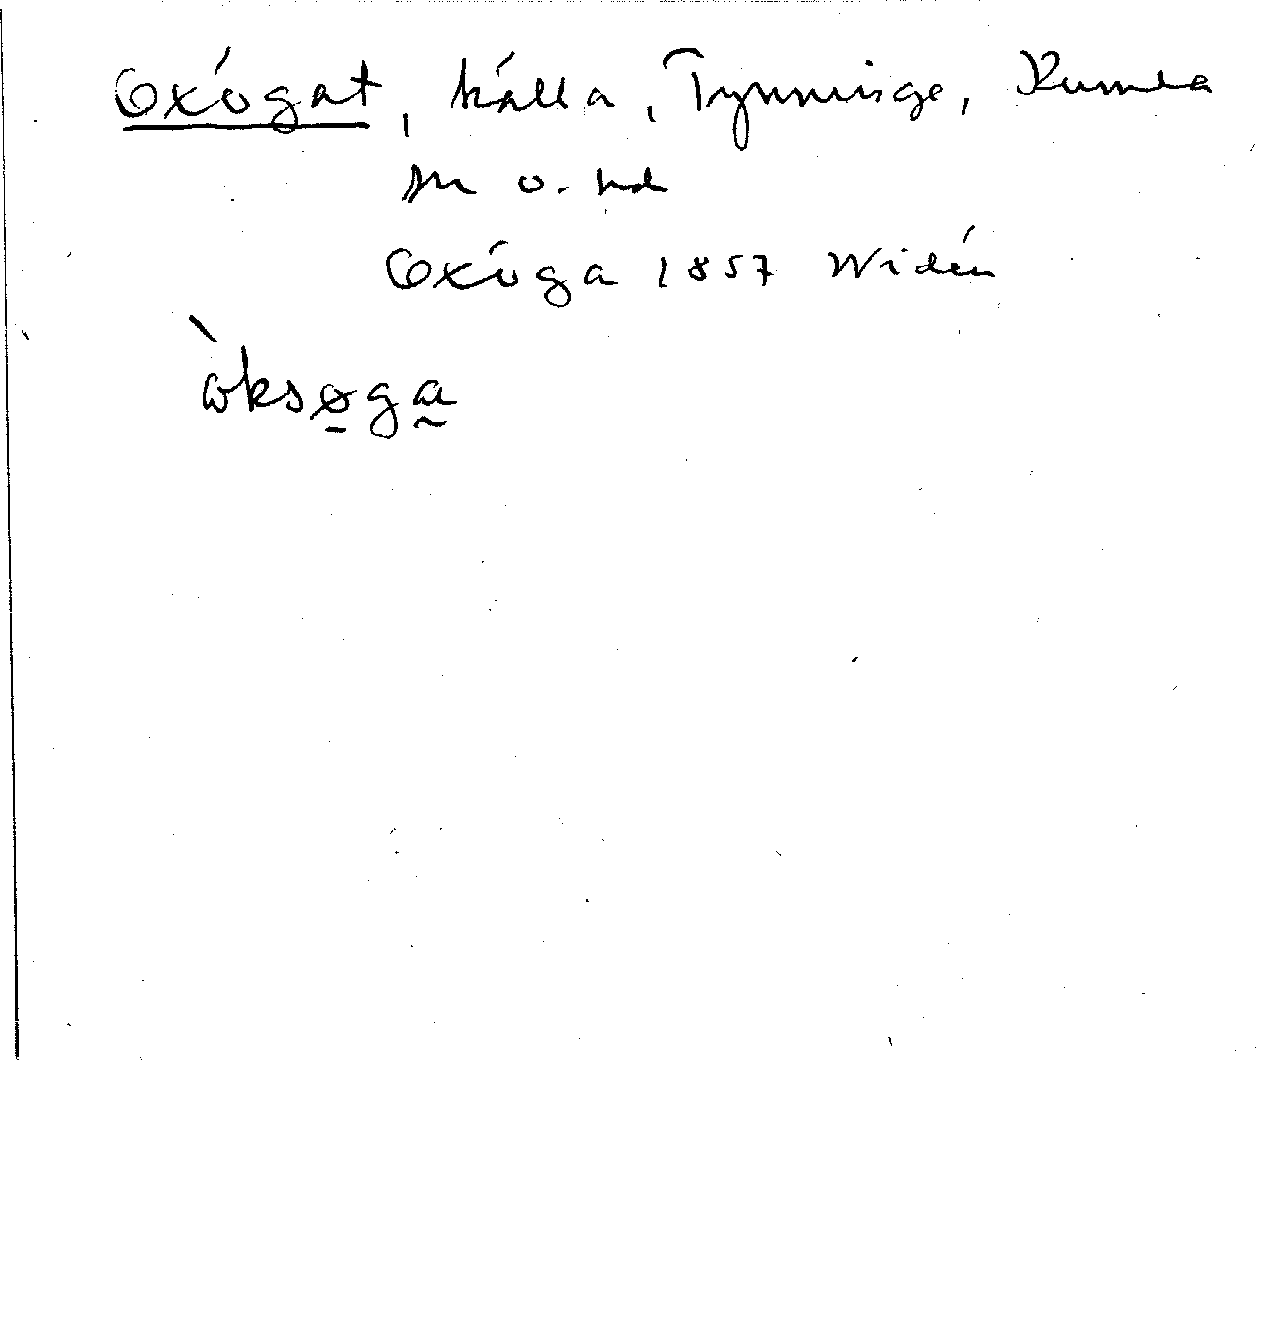 Oxögat, källa, Tynninge, Kumla
sn o. hd
Oxöga 1857 Widén
òksøga